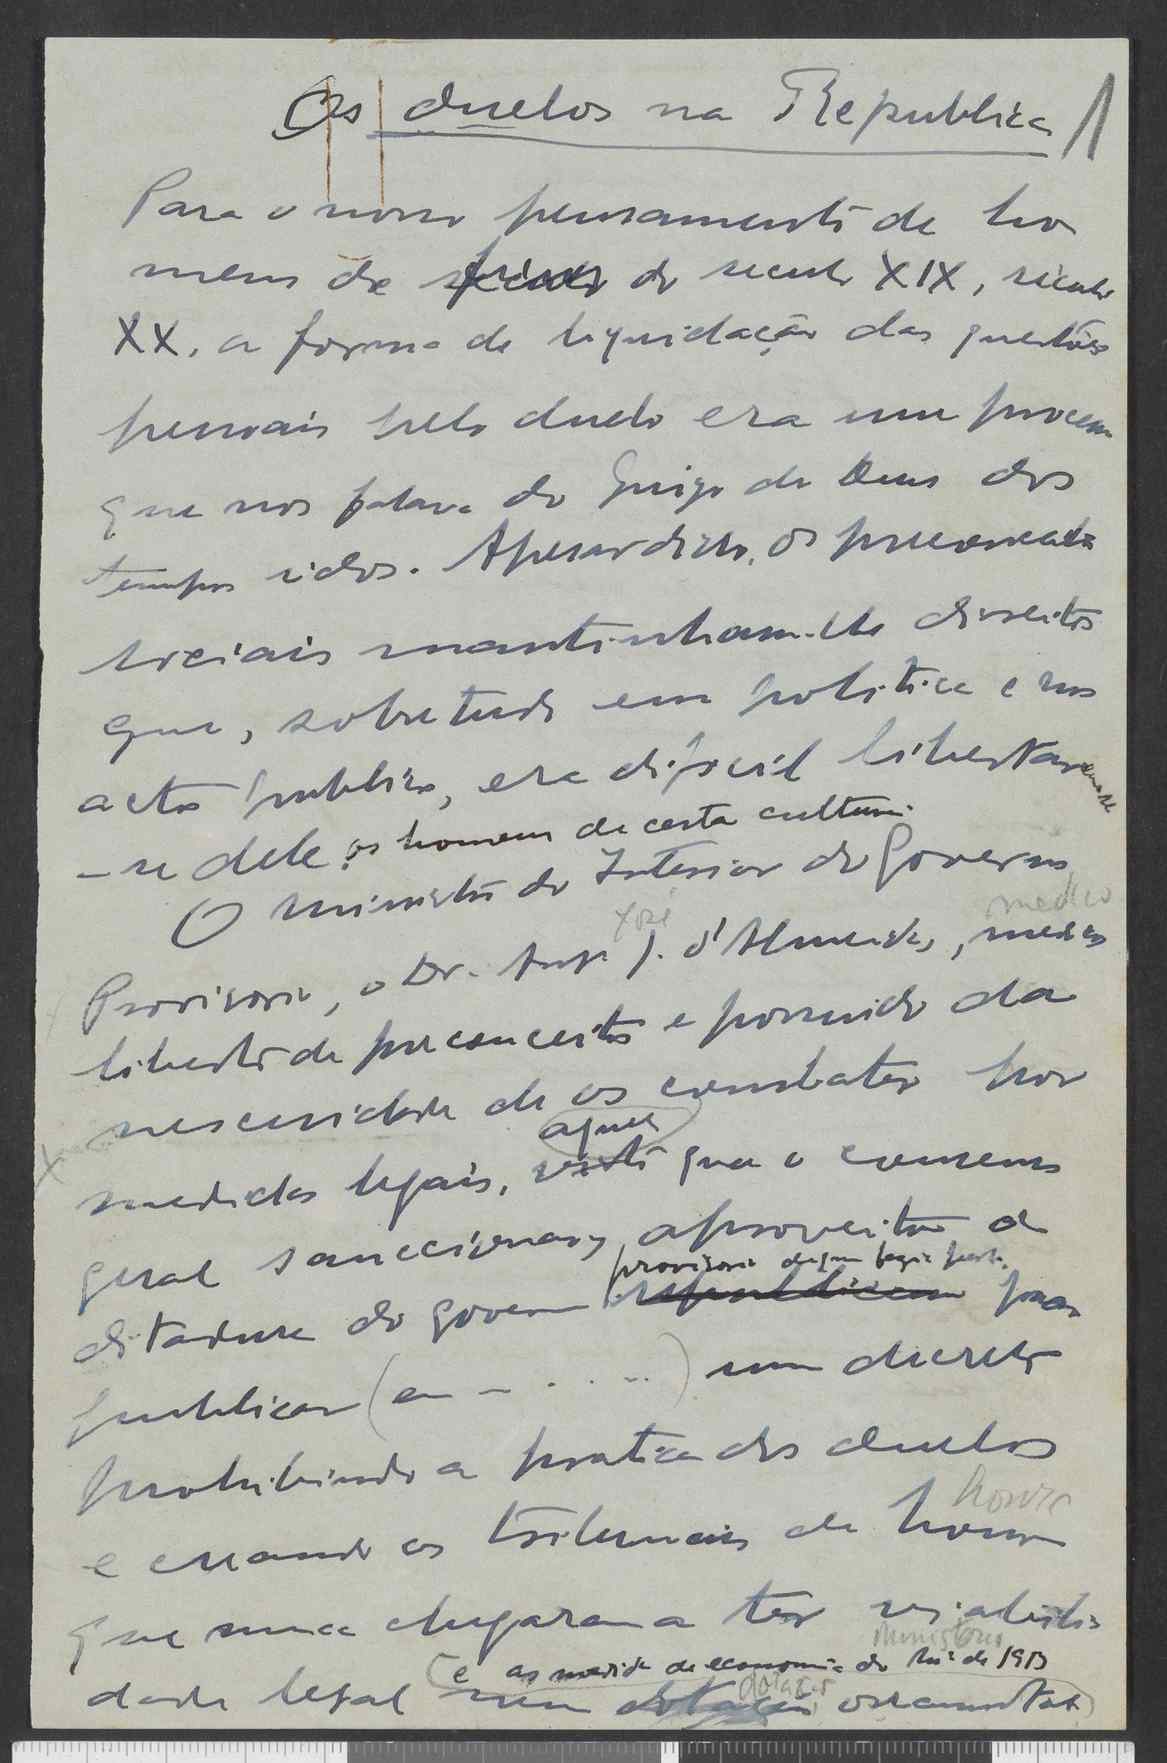 Os duelos na Republica 1
Para o nosso pensamento de ho
mens de do seculo XIX, seculo
XX, a forma de liquidação das questões
pessoais pelo duelo era um processo
que nos falava do Juizo de Deus dos
tempos idos. Apesar disso, os preconceitos
sociais mantinham-lhe direitos
que, sobretudo em politica e nos
actos publicos, era dificil libertarem-se
-se dele os homens de certa cultura.
O ministro do Interior do Governo
José medico
Provisorio, o Dr. Antº J. d'Almeida, medico
liberto de preconceitos e possuido da
nescecidade de os combater por
aquele
medidas legais, visto que o consenso
geral sanccionary aproveitou a
provisorio de que fazia parte
ditadura do governo republicano para
publicar (a - . . . ..) um decreto
prohibindo a pratica dos duelos
honra
e creando os tribunais de honra
que nunca chegaram a ter viabili
ministerio
(e as medidas de economia do de 1913
dotação
dade legal nem dotação orcamental)